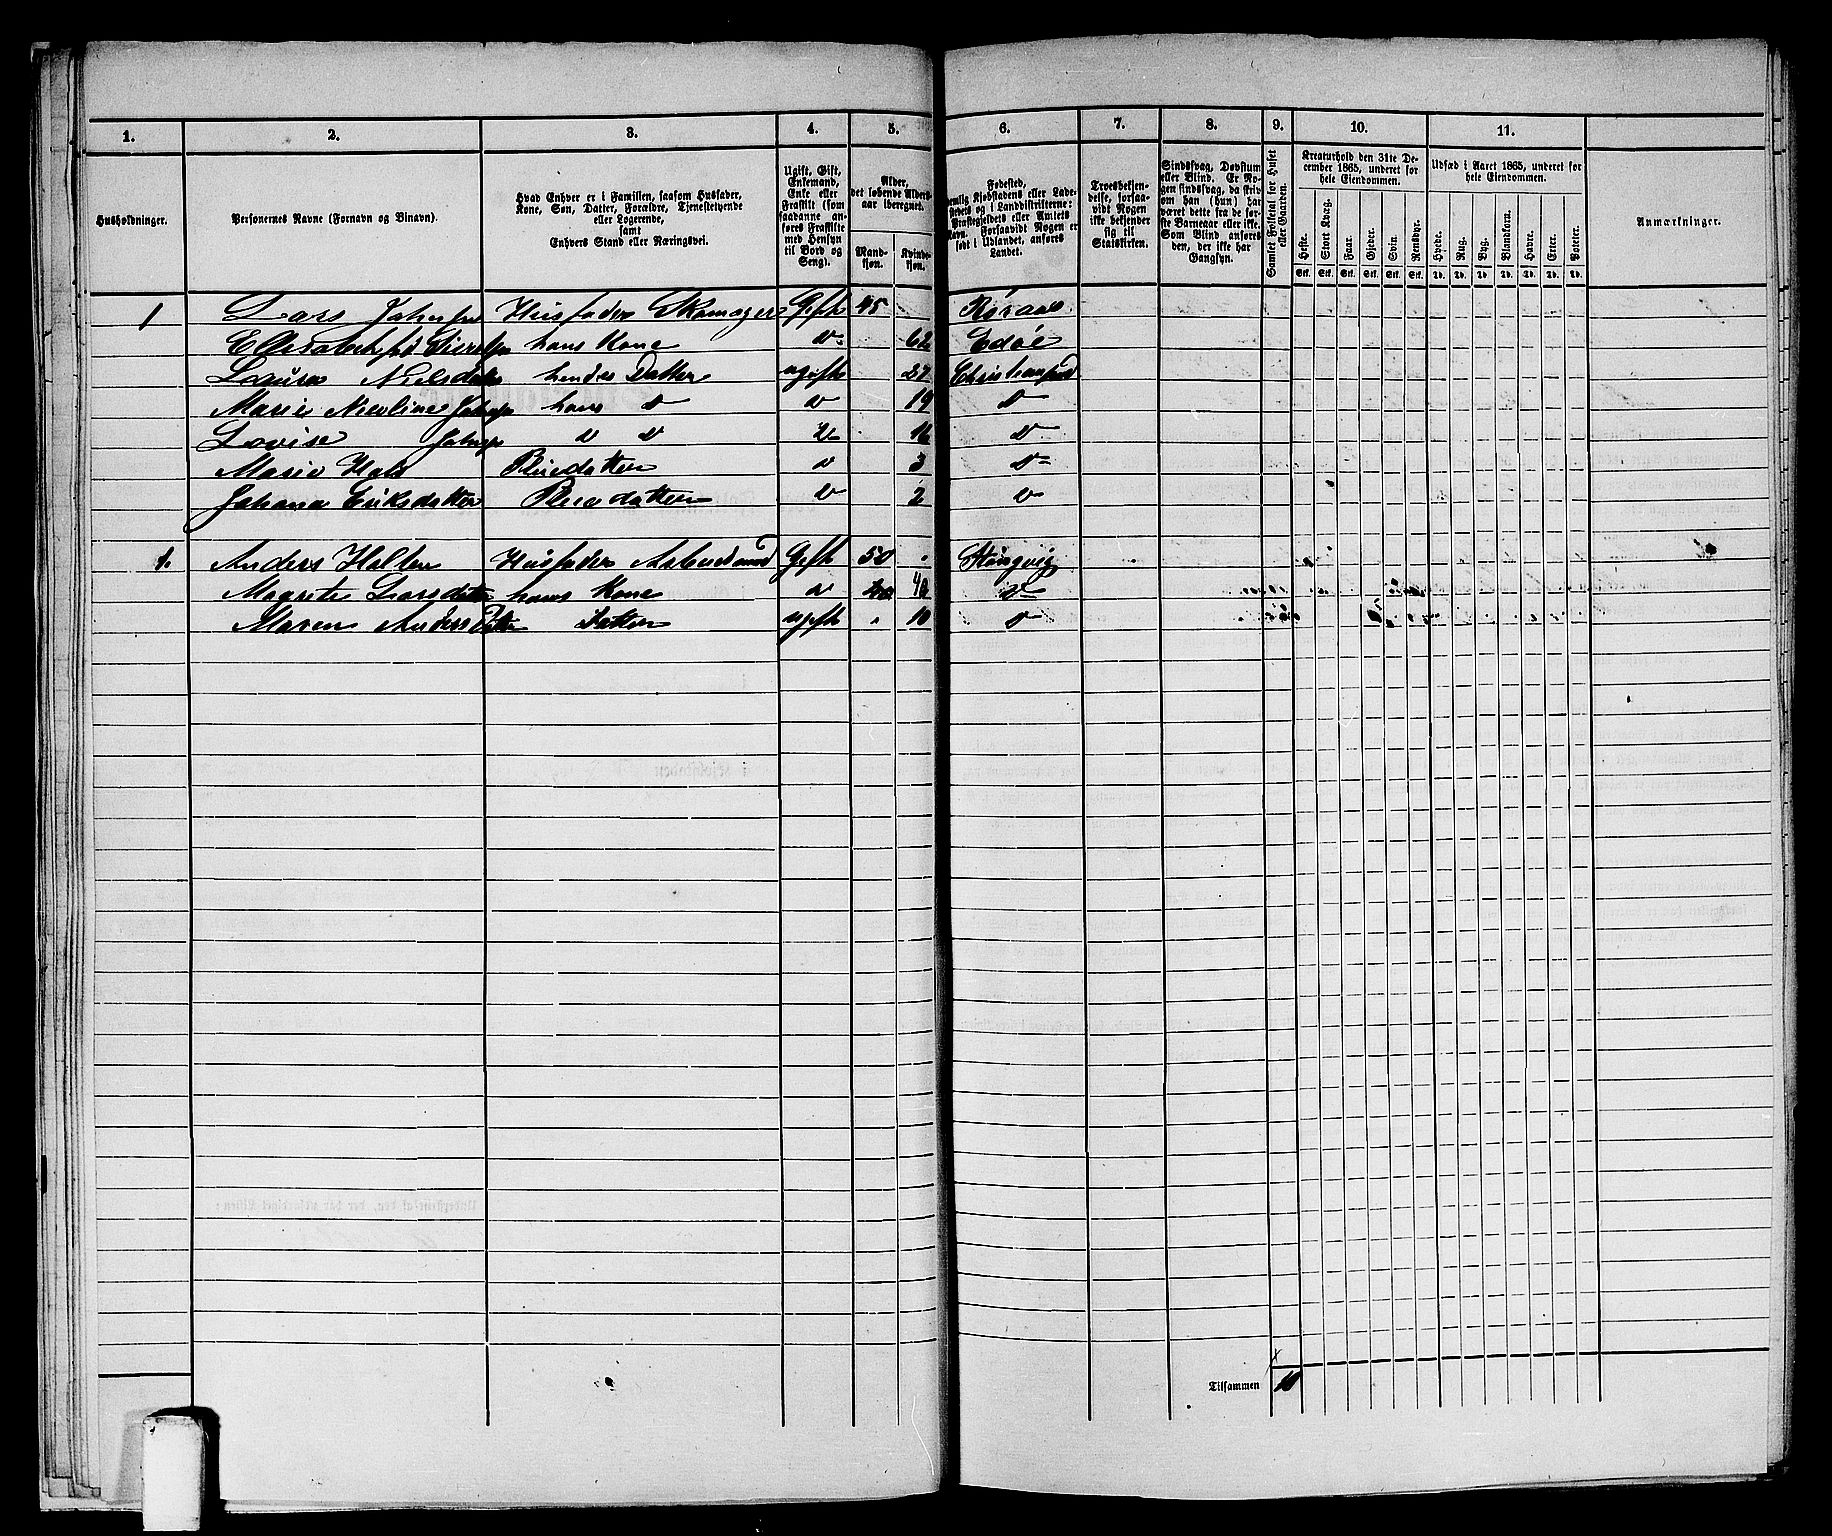 1. 2. 3. 4. 5. 6. 7. 8. 9. 10. 11.
Husholdninger.
Personernes Navne (Fornavn og Binavn).
Hvad Enhver er i Familien, saasom Husfader,
Kone, Søn, Datter, Forældre, Tjenestetyende
eller Logerende,
samt
Enhvers Stand eller Næringsvei.
Ugift, Gift,
Enkemand,
Enke eller
Fraskilt (som
saadanne an-
føres Fraskilte
med Hensyn
til Bord og
Seng).
Alder,
det løbende Alders-
aar iberegnet.
Mand-
kjøn.
Kvinde-
kjøn.
Fødested,
nemlig Kjøbstadens eller Lade-
stedets og i Landdistrikterne:
Præstegjeldets eller Amtets
Navn. Forsaavidt Nogen er
født i Udlandet, anføres
Landet.
Troesbekjen-
delse, forsaa-
vidt Nogen
ikke bekjender
sig til
Statskirken.
Sindssvag, Døvstum
eller Blind. Er No-
gen sindssvag, da skriv
om han (hun) har
været dette fra de før-
ste Barneaar eller ikke.
Som Blind anføres
den, der ikke har
Gangsyn.
Samlet Folketal for Huset
eller Gaarden.
Kreaturhold den 31te De-
cember 1865, underet for
hele Eiendommen.
Heste. Stort Kvæg. Faar. Gjeder. Svin. Rensdyr.
Stk. Stk. Stk. Stk. Stk. Stk.
Udsæd i Aaret 1865, underet for
hele Eiendommen.
Hvede. Rug. Byg. Blandkorn. Havre. Erter. Poteter.
Td. Td. Td. Td. Td. Td. Td.
Anmærkninger.
1 Lars Johnsen Husfader Skomager Gift 45 Røraas
hans Kone D 62 Edøe
Laurse Nielsdatter hendes Datter ugift 27 Christiansund
Marie Nicoline Johnsen hans D D 19 D
Lovise Johnsen D D D 16 D
Marie Hals Pleiedatter D 3 D
Johana Eriksdatter Pleiedatter D 2 D
1. Anders Halten Husfader Arbeidsmand Gift 50 Stangvig
Magrete Larsdatter hans Kone D 40 D
Maren Andersdatter Datter ugift 10 D
Tilsammen 10